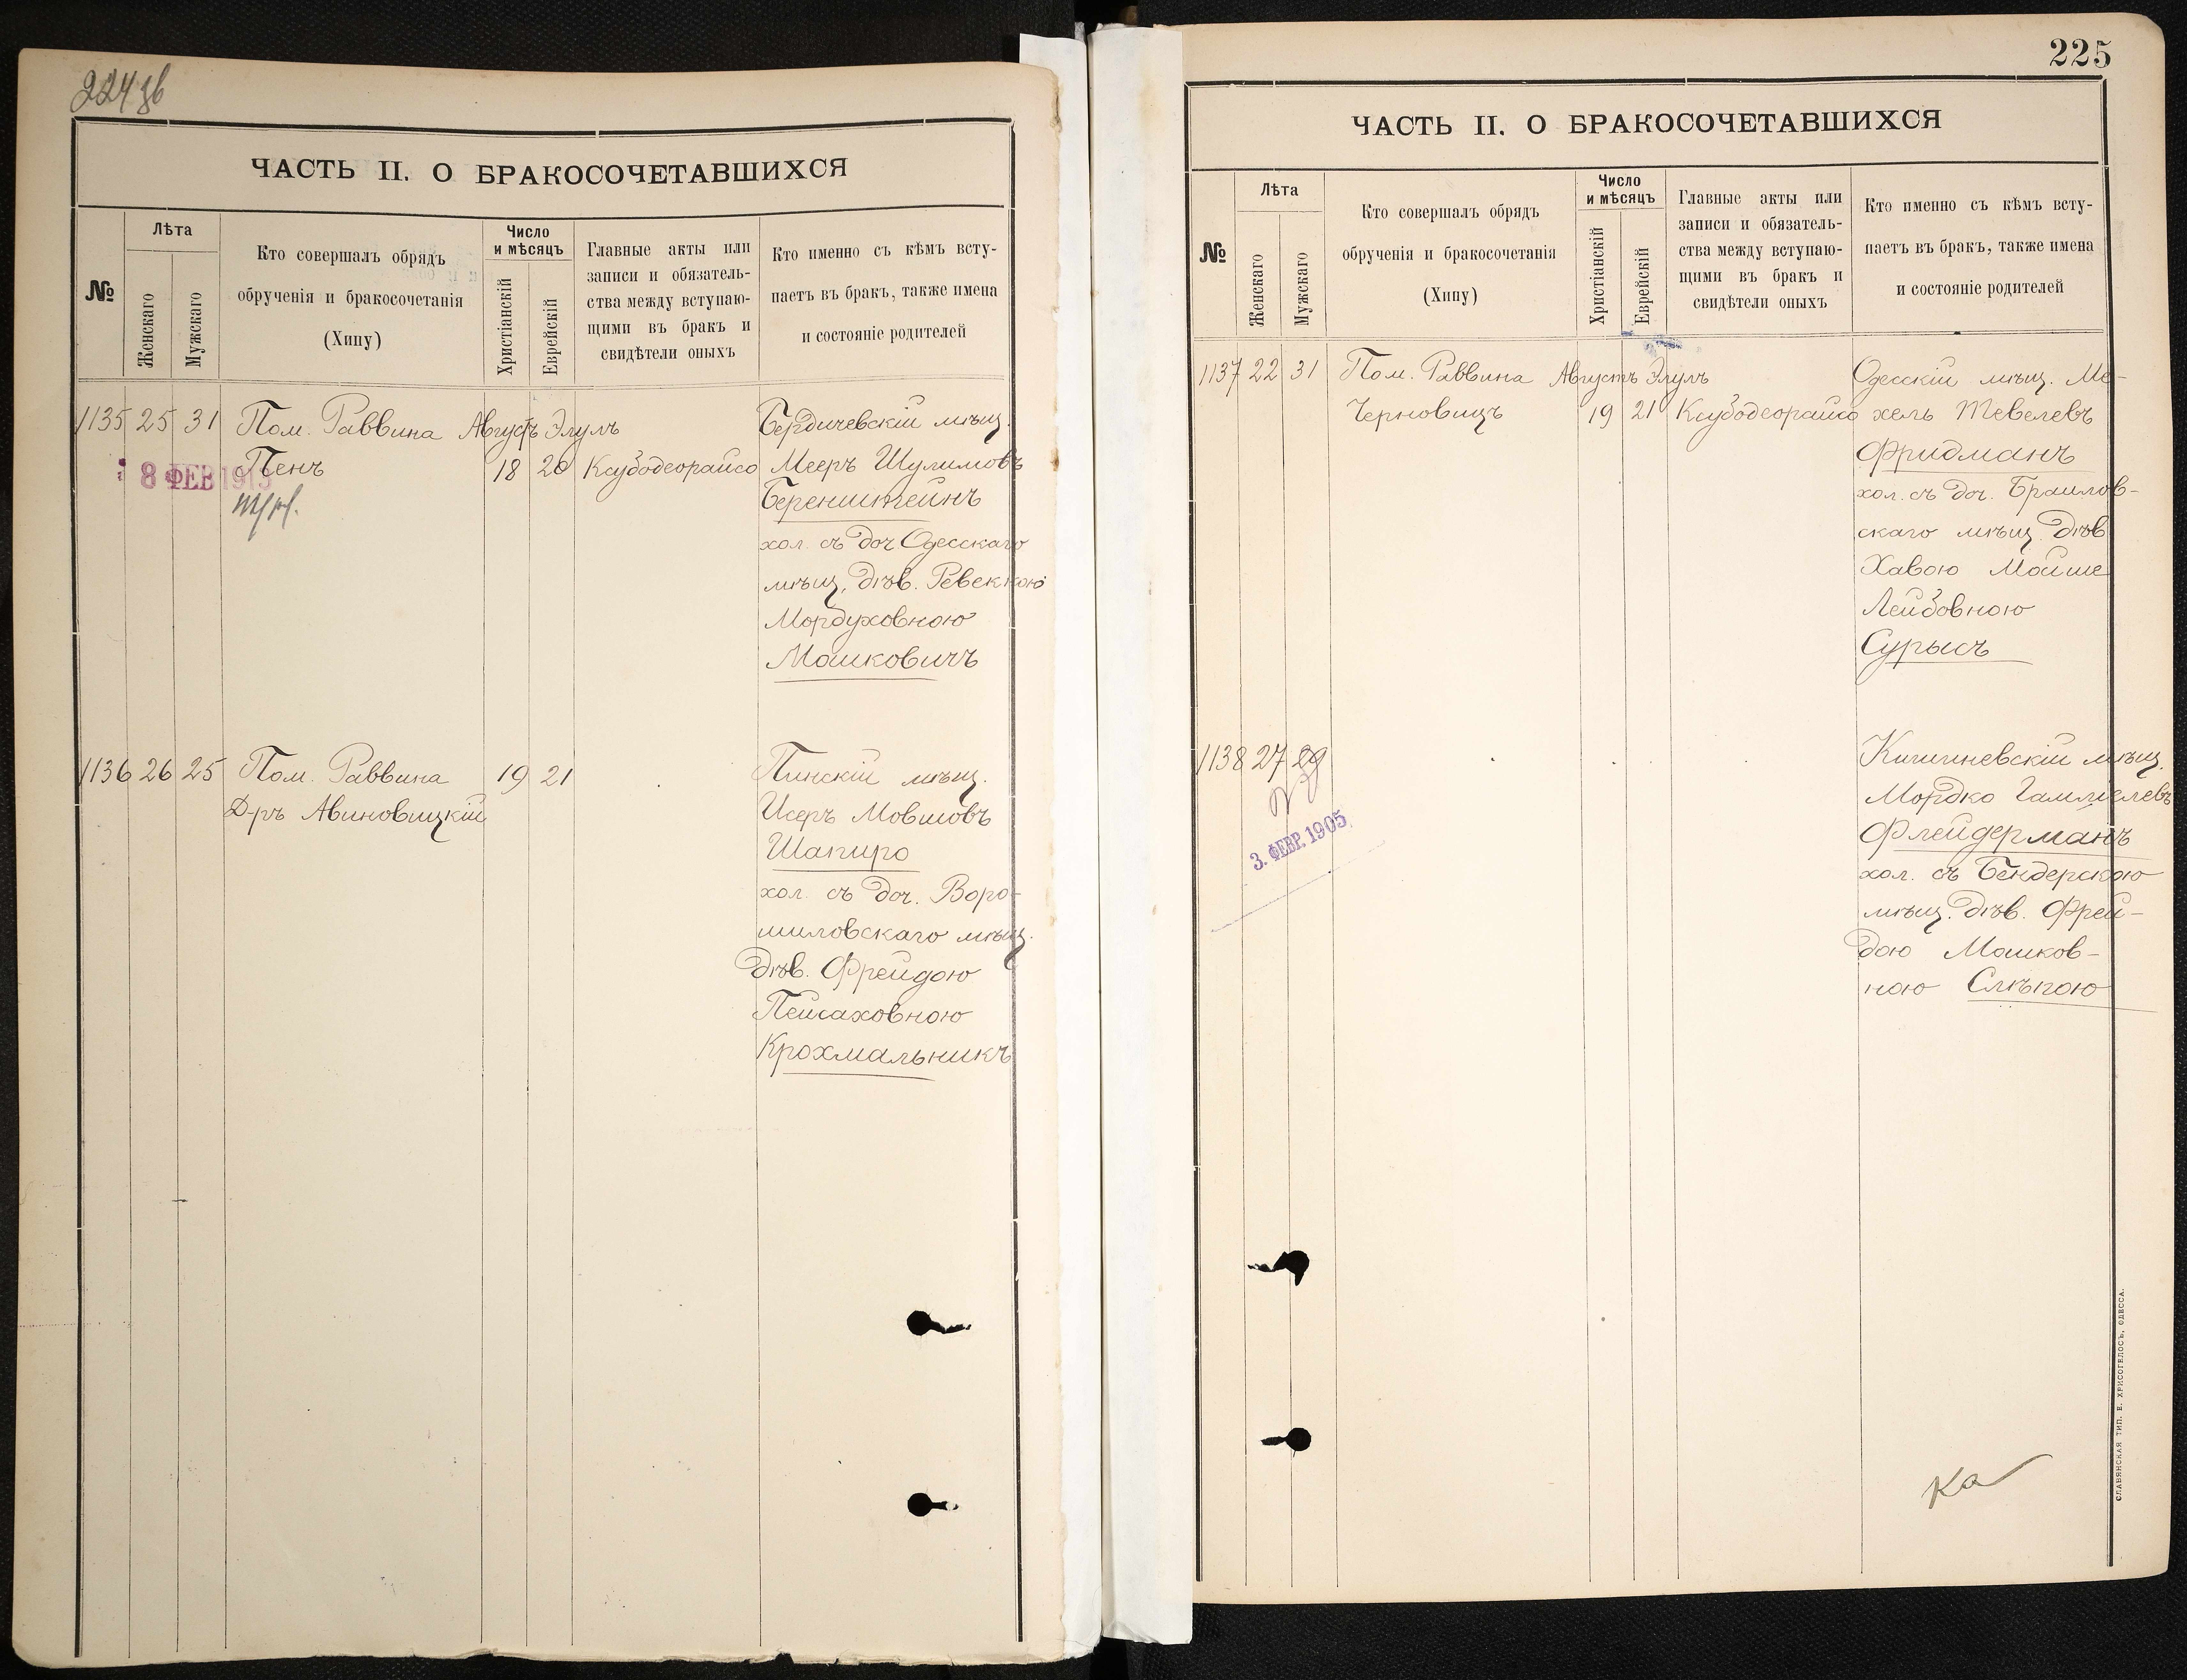 224 зв
ЧАСТЬ II. О БРАКОСОЧЕТАВШИХСЯ
№
Лѣта
Женскаго
Мужскаго
Кто совершалъ обрядъ
обрученія и бракосочетанія
(Хипу)
Число
и мѣсяцъ
Христіанскій
Еврейскій
Главные акты или
записи и обязатель-
ства между вступаю-
щими въ бракъ и
свидѣтели оныхъ
Кто именно съ кѣмъ всту-
паетъ въ бракъ, также имена
и состояніе родителей
1135 25 31 Пом. Раввина Августъ Элулъ Бердичевскій мѣщ.
Пенъ 18 20 Ксубодеорайсо Мееръ Шулимовъ
8 ФЕВ 1913
Беренштейнъ
хол. съ доч Одесскаго
мѣщ. дѣв. Ревеккою
Мордуховною
Машковичъ
1136 26 25 Пом. Раввина 19 21 Пинскій мѣщ.
Д-ръ Авиновицкій Исеръ Мовшовъ
Шапиро
хол. съ доч. Воро-
шиловскаго мѣщ.
дѣв. Фрейдою
Пейсаховною
Крохмальникъ
225
ЧАСТЬ II. О БРАКОСОЧЕТАВШИХСЯ
№
Лѣта
Женскаго
Мужскаго
Кто совершалъ обрядъ
обрученія и бракосочетанія
(Хипу)
Число
и мѣсяцъ
Христіанскій
Еврейскій
Главные акты или
записи и обязатель-
ства между вступаю-
щими въ бракъ и
свидѣтели оныхъ
Кто именно съ кѣмъ всту-
паетъ въ бракъ, также имена
и состояніе родителей
1137 22 31 Пом. Раввина Августъ Элулъ Одесскій мѣщ. Ме-
Черновицъ 19 21 Ксубодеорайсо хель Тевелевъ
Фридманъ
хол. съ доч. Браилов-
скаго мѣщ. дѣв
Хавою Мойше
Лейбовною
Сурысъ
1138 27 29 Кишиневскій мѣщ.
Мордко Гамшелевъ
3. ФЕВР. 1905
Флейдерманъ
хол. съ Бендерскою
мѣщ. дѣв. Фрей-
дою Машков-
ною Слѣпою
Ка
СЛАВЯНСКАЯ ТИП. Е. ХРИСОГЕЛОСЪ, ОДЕССА.